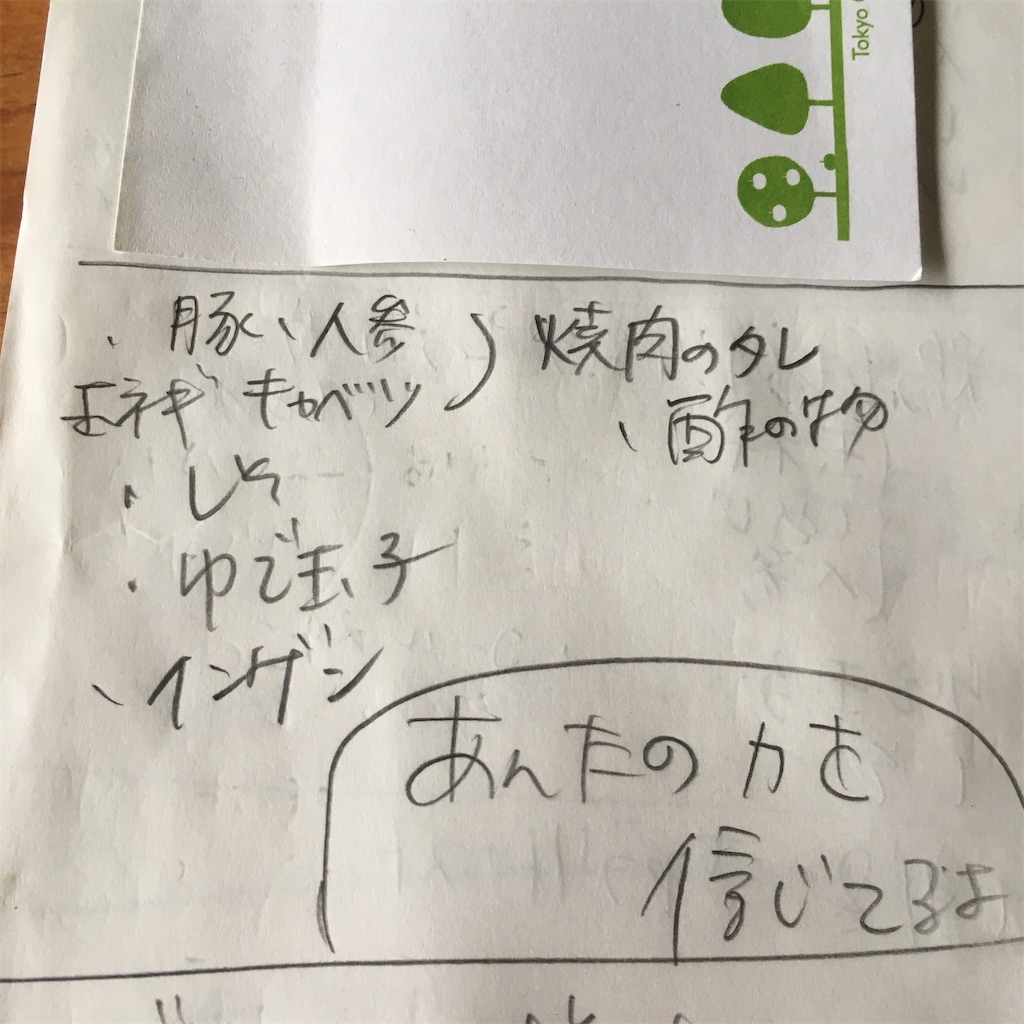 Tokyo
・豚、人参
玉ネギ キャベツ
) 焼肉のタレ
、酢の物
・しそ
・ゆで玉子
、インゲン
あんたの力を
信じてるよ